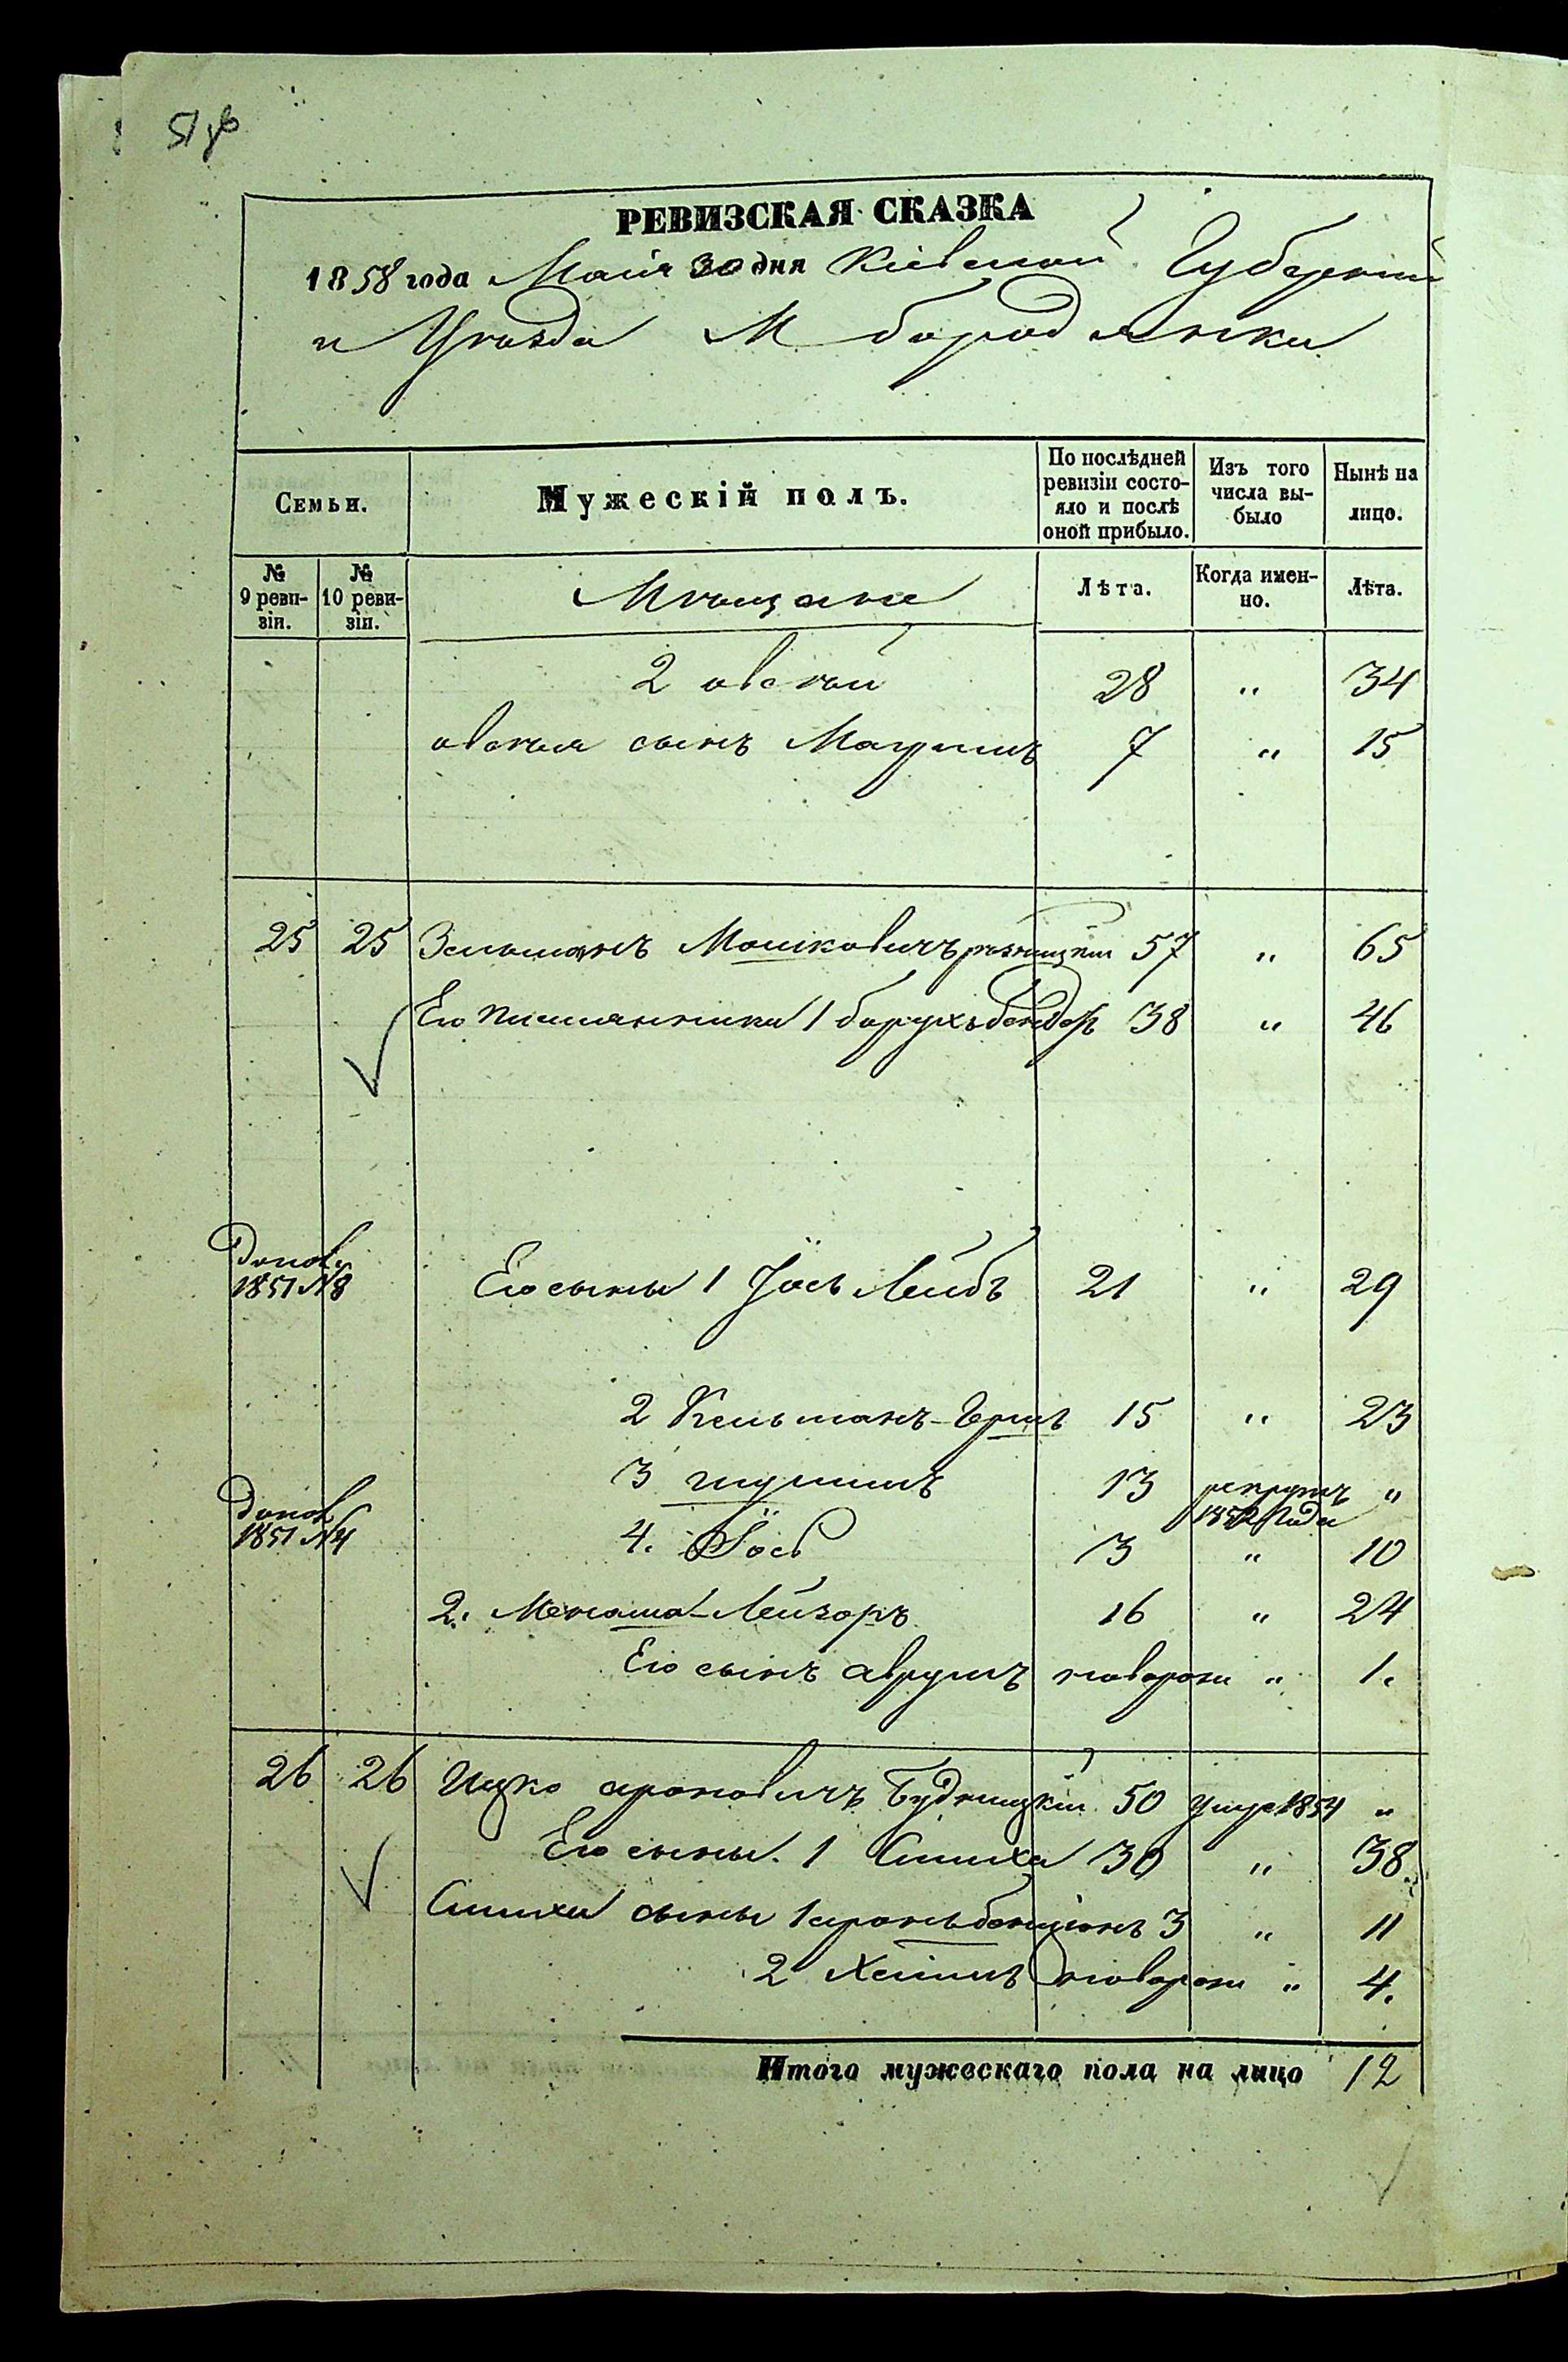 51 об
РЕВИЗСКАЯ СКАЗКА
1858 года Маія 30 дня Кіевской Губерніи
и Уѣзда М бородянки
Семьи.
Мужескій полъ.
По послѣдней ревизіи состояло и послѣ оной прибыло.
Изъ того числа выбыло
Нынѣ на лицо.
№ 9 ревизіи.
№ 10 ревизіи.
Мѣщане
Лѣта.
Когда именно.
Лѣта.
2 овсѣй 28 " 34
овсѣя сынъ 7 " 15
25 25 Зельманъ Мошковичъ 57 " 65
Его племянники 1 борухъ бендеръ 38 " 46
Допол
1851 №8 Его сыны 1 Іось Лейбъ 21 " 29
2 Кельманъ-Гершъ 15 " 23
3 13 рекрутъ "
1852 года
Допол
1851 №4 4. Іось 3 " 10
2. Менаша-Лейзоръ 16 " 24
Его сынъ аврумъ новорож " 1.
26 26 Ицко ароновичъ Будницкій 50 умре 1854 "
Его сыны. 1 Симха 30 " 38.
Симхи сыны 1 аронъ бенціонъ 3 " 11
2 Хаимъ новорож " 4.
Итого мужескаго пола на лицо 12